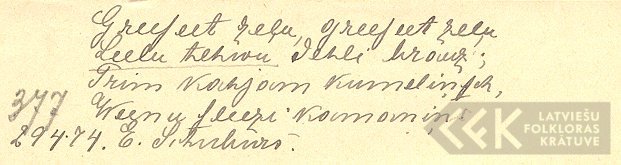 Greeseet zeļu, greeseet zeļu
Leelu tehwu dehli brauz;
Trim kahjam kumeliņsch,
Weenu sleezi kamaniņ
377
29474. E. Stuburs.
LATVIEŠU
FOLKLORAS
KRĀTUVE